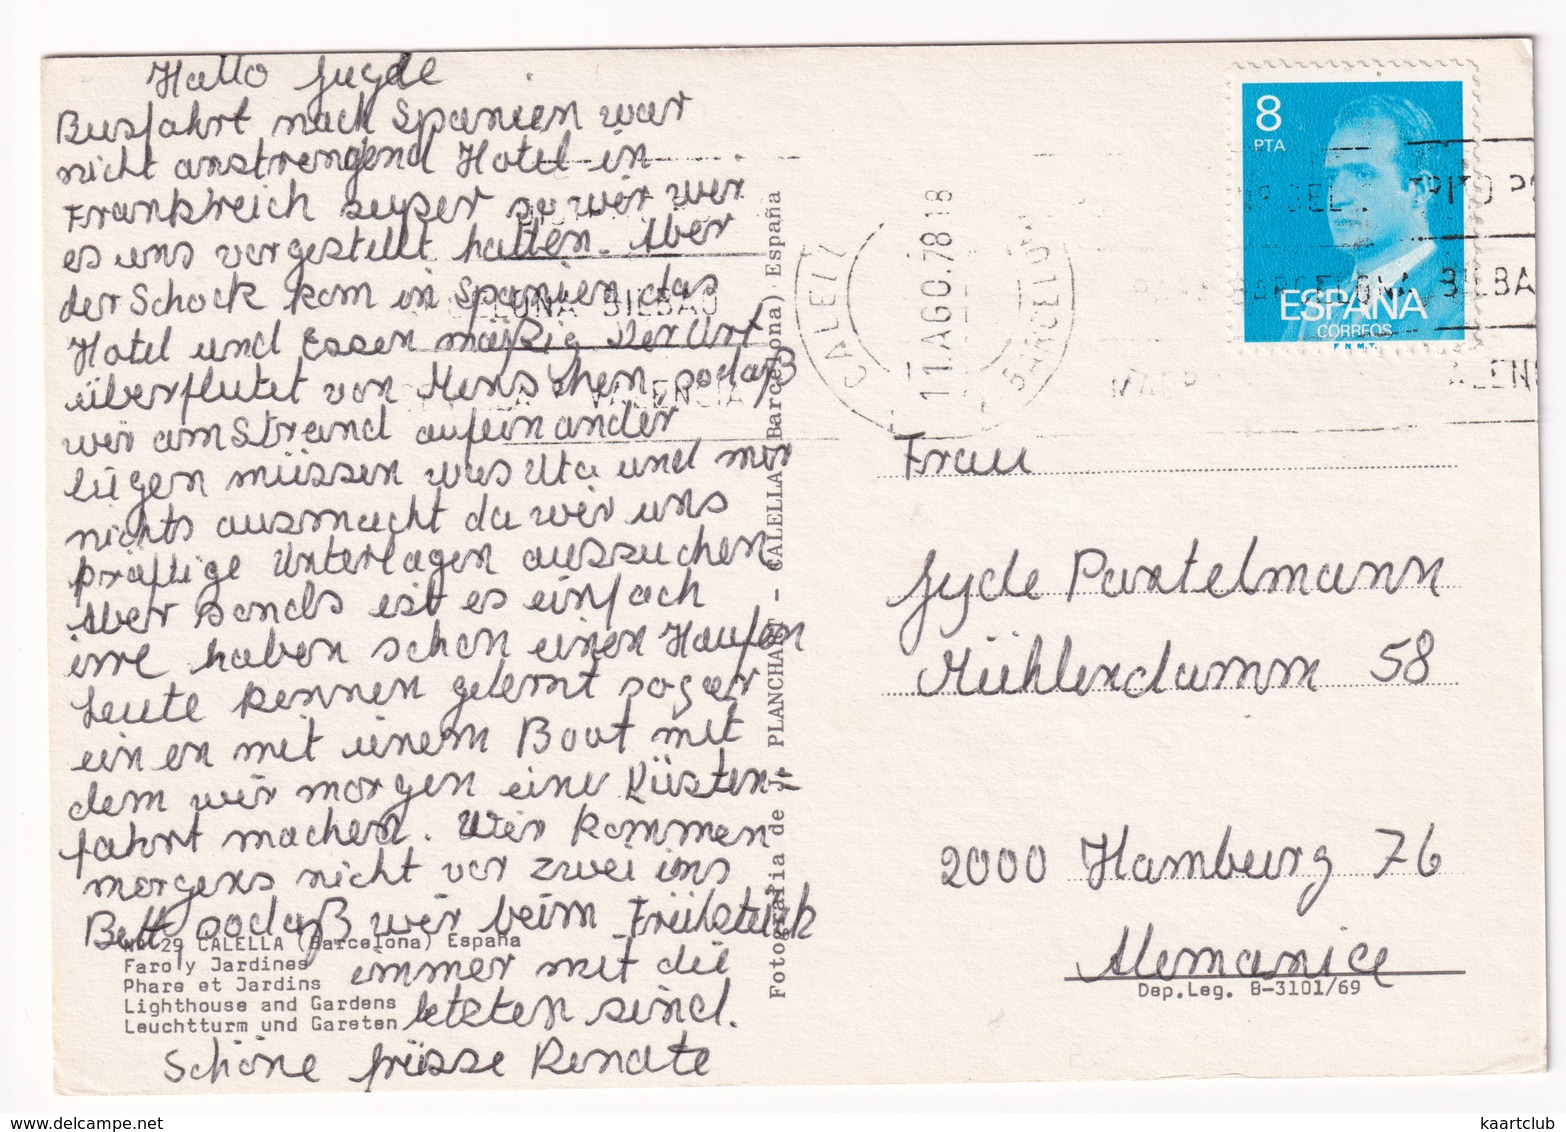 Hallo Jugde
Busfahrt nach Spanien war
nicht anstrengend Hotel in
Frankreich super so wir wir
es uns vorgestellt hatten. Aber
der Schock kam in Spanien das
Hotel und Essen mäßig Der Ort
überflutet von Menschen, sodaß
wir am Strand aufeinander
lügen müssen was Uta und mir
nichts ausmacht da wir uns
kräftige Unterlagen aussuchen
Aber sonds ist es einfach
irre haben schon einen Haufen
Leute kennen gelernt sogar
ein en mit einem Boot mit
dem wir morgen eine Küsten=
fahrt machen. Wir kommen
morgens nicht vor zwei ins
Bett sodaß wir beim Frühstück
immer mit die
letzten sind.
Schöne Grüsse Renate
No 29 CALELLA (Barcelona) España
Faro y Jardines
Phare et Jardins
Lighthouse and Gardens
Leuchtturm und Gareten
Fotografía de PLANCHART - CALELLA (Barcelona) España
BARCELONA BILBAO
VALENCIA
11.AGO.78 18
BARCELONA
8
PTA
ESPAÑA
CORREOS
F.N.M.T.
BARCELONA BILBA
Frau
Jyde Pantelmann
Mühlendamm 58
2000 Hamburg 76
Alemanice
Dep.Leg. B-3101/69
kaartclub